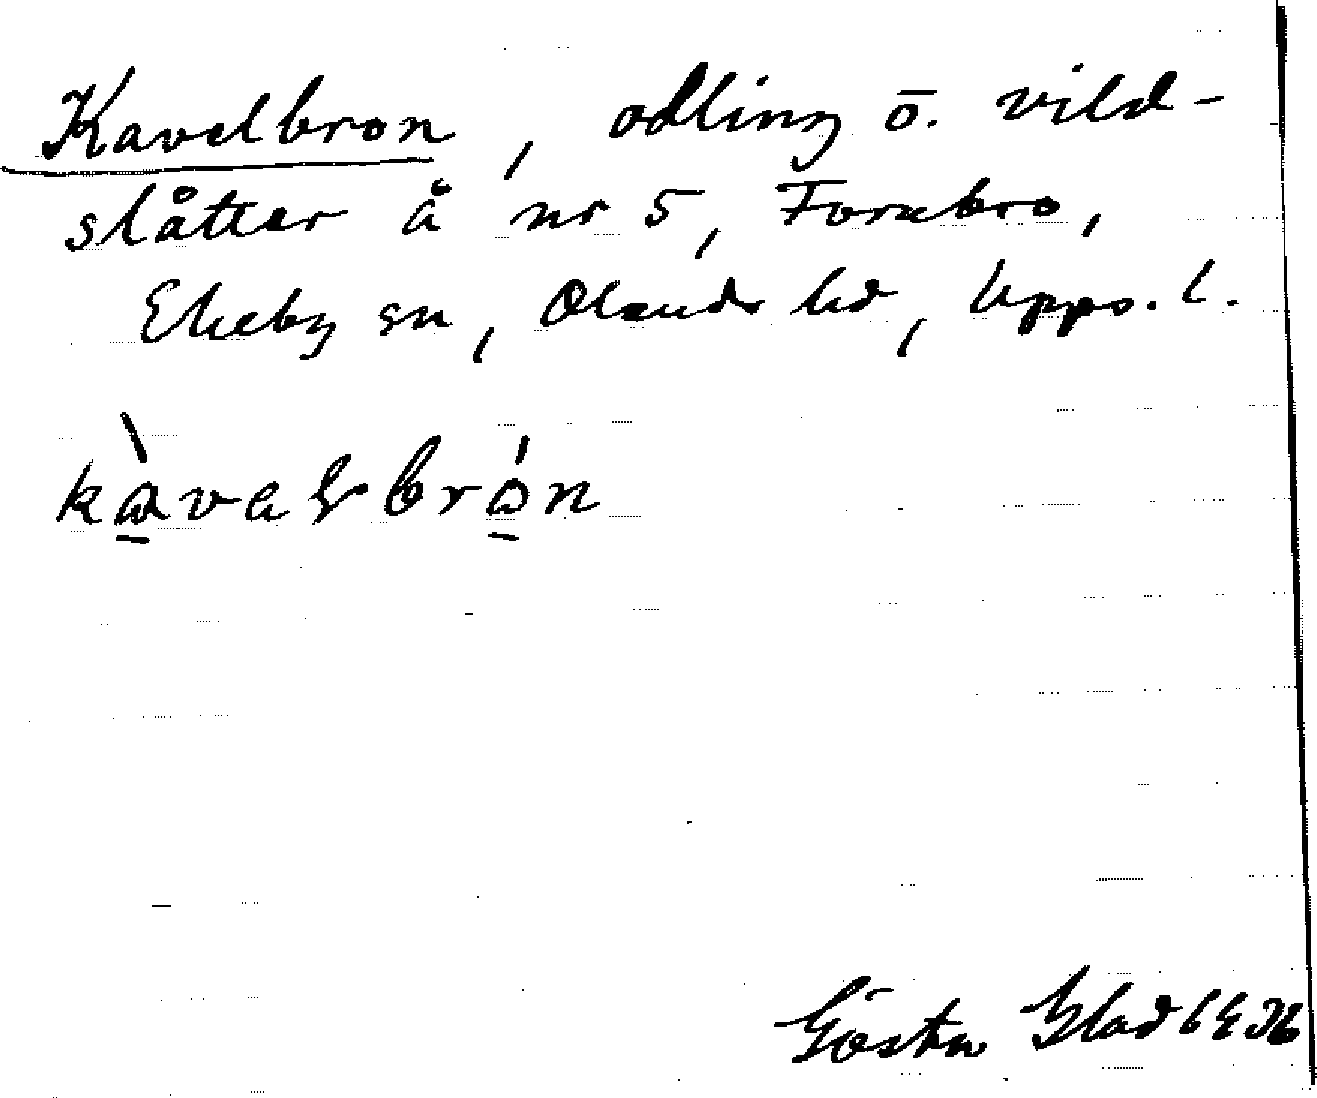 Kavelbron, odling o. vild-
slåtter å nr 5, Foraebro,
Ekeby sn, Olands hd, Upps. l.
kàvaɬbrón
Gösta Blad 1936